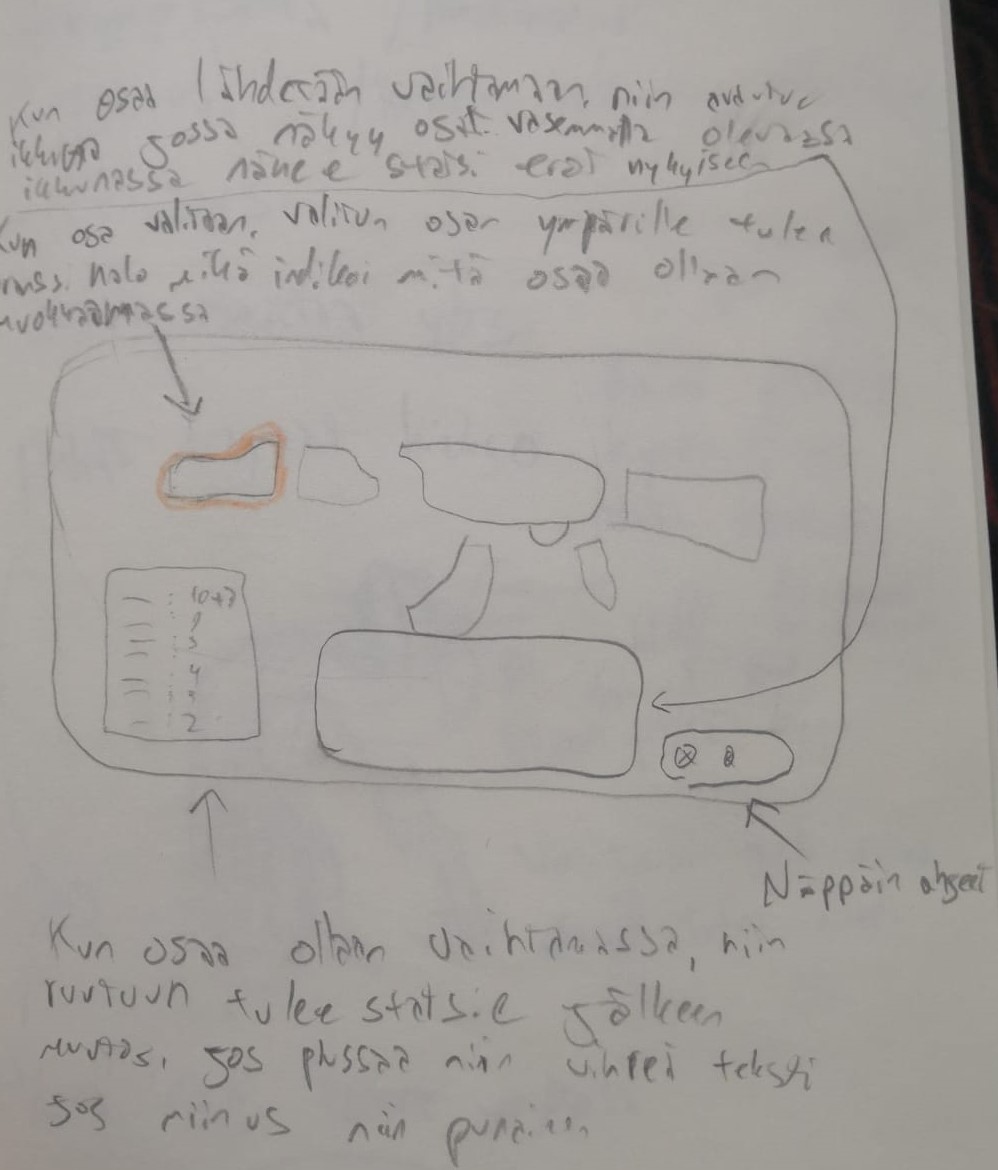 Kun osaa lähdetään vaihtamaan, niin avautuu
ikkuna jossa näkyy osat. vasemmalla olevassa
ikkunassa näkee statsi erot nykyiseen
Kun osa valitaan, valitun osan ympärille tulee
halo mikä indikoi mitä osaa ollaan
muokkaamassa
10+7
9
3
4
2
Näppäin ohjeet
Kun osaa ollaan vaihtamassa, niin
ruutuun tulee statsie jälkeen
muutos, jos plussaa niin vihreä teksti
jos miinus niin punainen